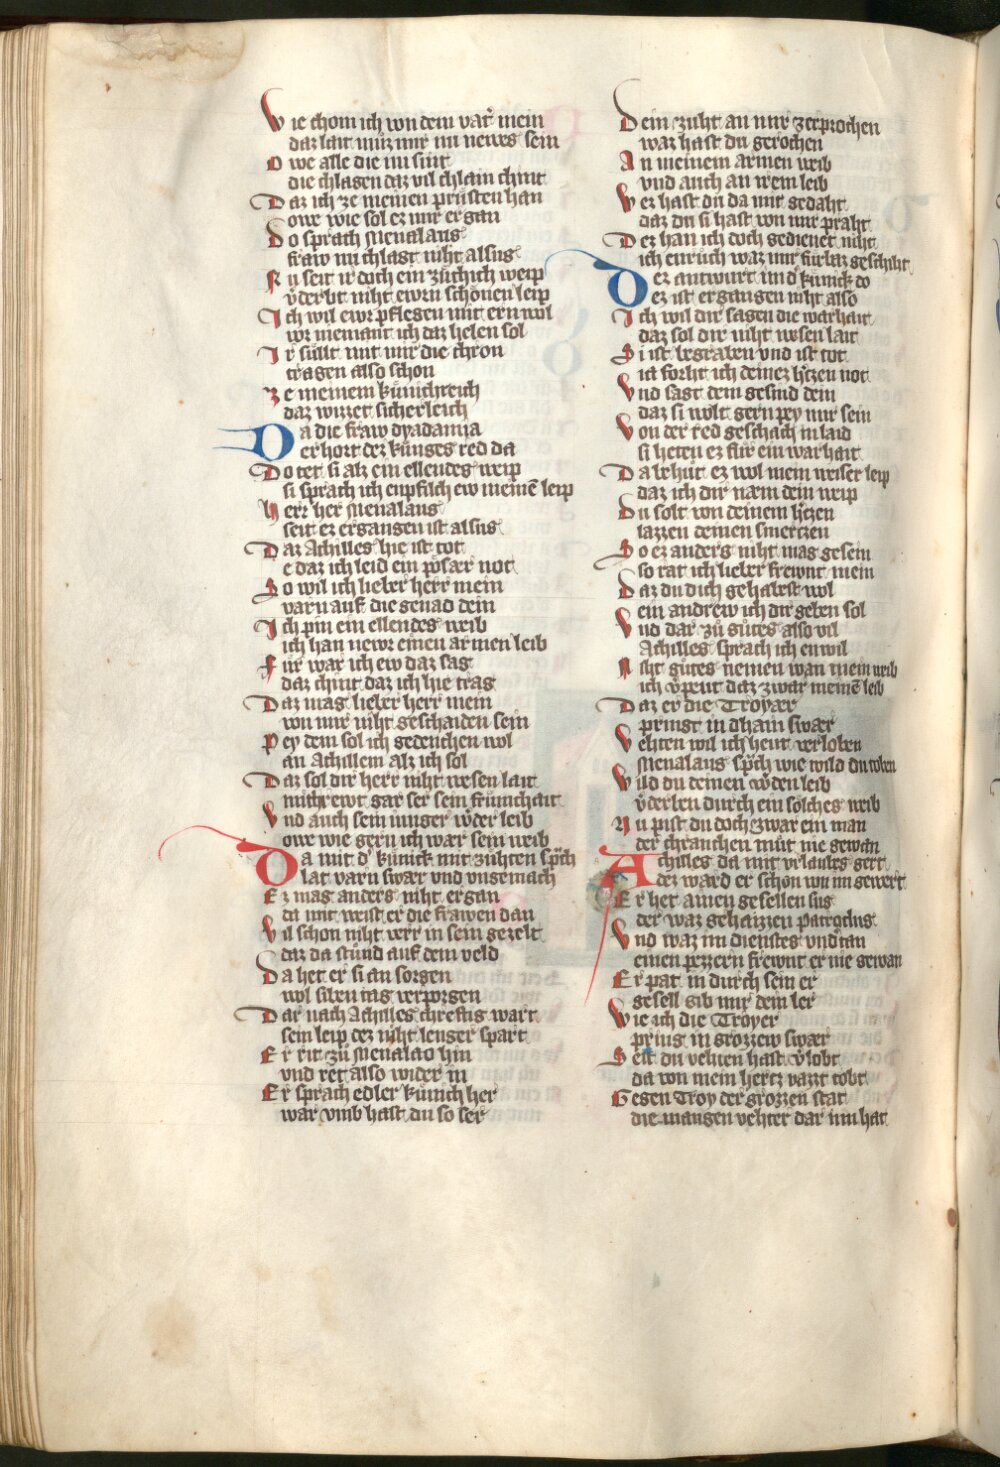 Wie chom ich von dem vat᷑ mein
daz lait muz mir nu newes sein
Owe alle die nu sint
die chlagen daz vil chlain chint
Daz ich ze meinen prüsten han
owe wie sol ez mir ergan
Do sprach Menalaus
fraw nu chlagt niht alsus
Nu seit ir doch ein züchich weip
v̓derbt niht ewrn schönen leip
Ich wil ewr pflegen mit ern wol
vor niemant ich daz helen sol
Ir süllt mit mir die chron
tragen also schon
Ze meinem künichreich
daz wizzet sicherleich
Da die fraw dyadamia
erhort dez künges red da
Do tet si alz ein ellendes weip
si sprach ich enpfilch ew meinē leip
Herr her Menalaus
seit ez ergangen ist alsus
Daz Achilles hie ist tot
e daz ich leid ein pösær not
So wil ich lieber herr mein
varn auf die genad dein
Ich pin ein ellendes weib
ich han newr einen armen leib
Für war ich ew daz sag
daz chint daz ich hie trag
Daz mag lieber herr mein
von mir niht geschaiden sein
Pey dem sol ich gedenchen wol
an Achillem alz ich sol
Daz sol dir herr niht wesen lait
mich rewt gar ser sein frümchait
Und auch sein iunger w̓der leib
owe wie gern ich wær sein weib
Da mit d̓ künick mit zühten sp̄ch
lat varn swær vnd vngemach
Ez mag anders niht ergan
da mit weist er die frawen dan
Vil schon niht verr in sein gezelt
daz da stünd auf dem veld
Da het er si an sorgen
wol siben tag verporgen
Dar nach Achilles chreftig wart
sein leip dez niht lenger spart
Er rit zü Menalao hin
vnd ret also wider in
Er sprach edler künich her
war vmb hast du so ser
Dein zuht an mir zerprochen
waz hast du gerochen
An meinem armen weib
vnd auch an irem leib
Wez hast du da mit gedaht
daz du si hast von mir praht
Dez han ich doch gedienet niht
ich enruch waz mir fürbaz geschiht
Dez antwurt im d̓ künick do
ez ist ergangen niht also
Ich wil dir sagen die warhait
daz sol dir niht wesen lait
Si ist begraben vnd ist tot
ich forht ich deinez h̓tzen not
Vnd sagt dem gesind dein
daz si wolt gern pey mir sein
Von der red geschach in laid
si heten ez für ein warhait
Da behüt ez wol mein weiser leip
daz ich dir næm dein weip
Du solt von deinem h̓tzen
lazzen deinen smertzen
So ez anders niht mag gesein
so rat ich lieber frewnt mein
Daz du dich gehabest wol
ein andrew ich dir geben sol
Vnd dar zü gütes also vil
Achilles sprach ich enwil
Niht gütes nemen wan mein weib
ich v̓peut daz zwar meinē leib
Daz er die Troyær
pringt in dhain swær
Vehten wil ich heut verloben
Menalaus sp̄ch wie wild du toben
Wild du deinen w̓den leib
v̓derben durch ein solches weib
Nu pist du doch zwar ein man
der chranchen müt nie gewan
Achilles da mit vrlaubes gert
dez ward er schon von im gewert
Er het ainen gesellen sus
der waz gehaizzen Patroclus
Vnd waz im dienstes vndtan
einen pezzern frewnt er nie gewan
Er pat in durch sein er
gesell gib mir dein ler
Wie ich die Troyer
pring in grozzew swær
Seit du vehten hast v̓lobt
da von mein hertz vazt tobt
Gegen Troy der grozzen stat
die mangen vehter dar inn hat